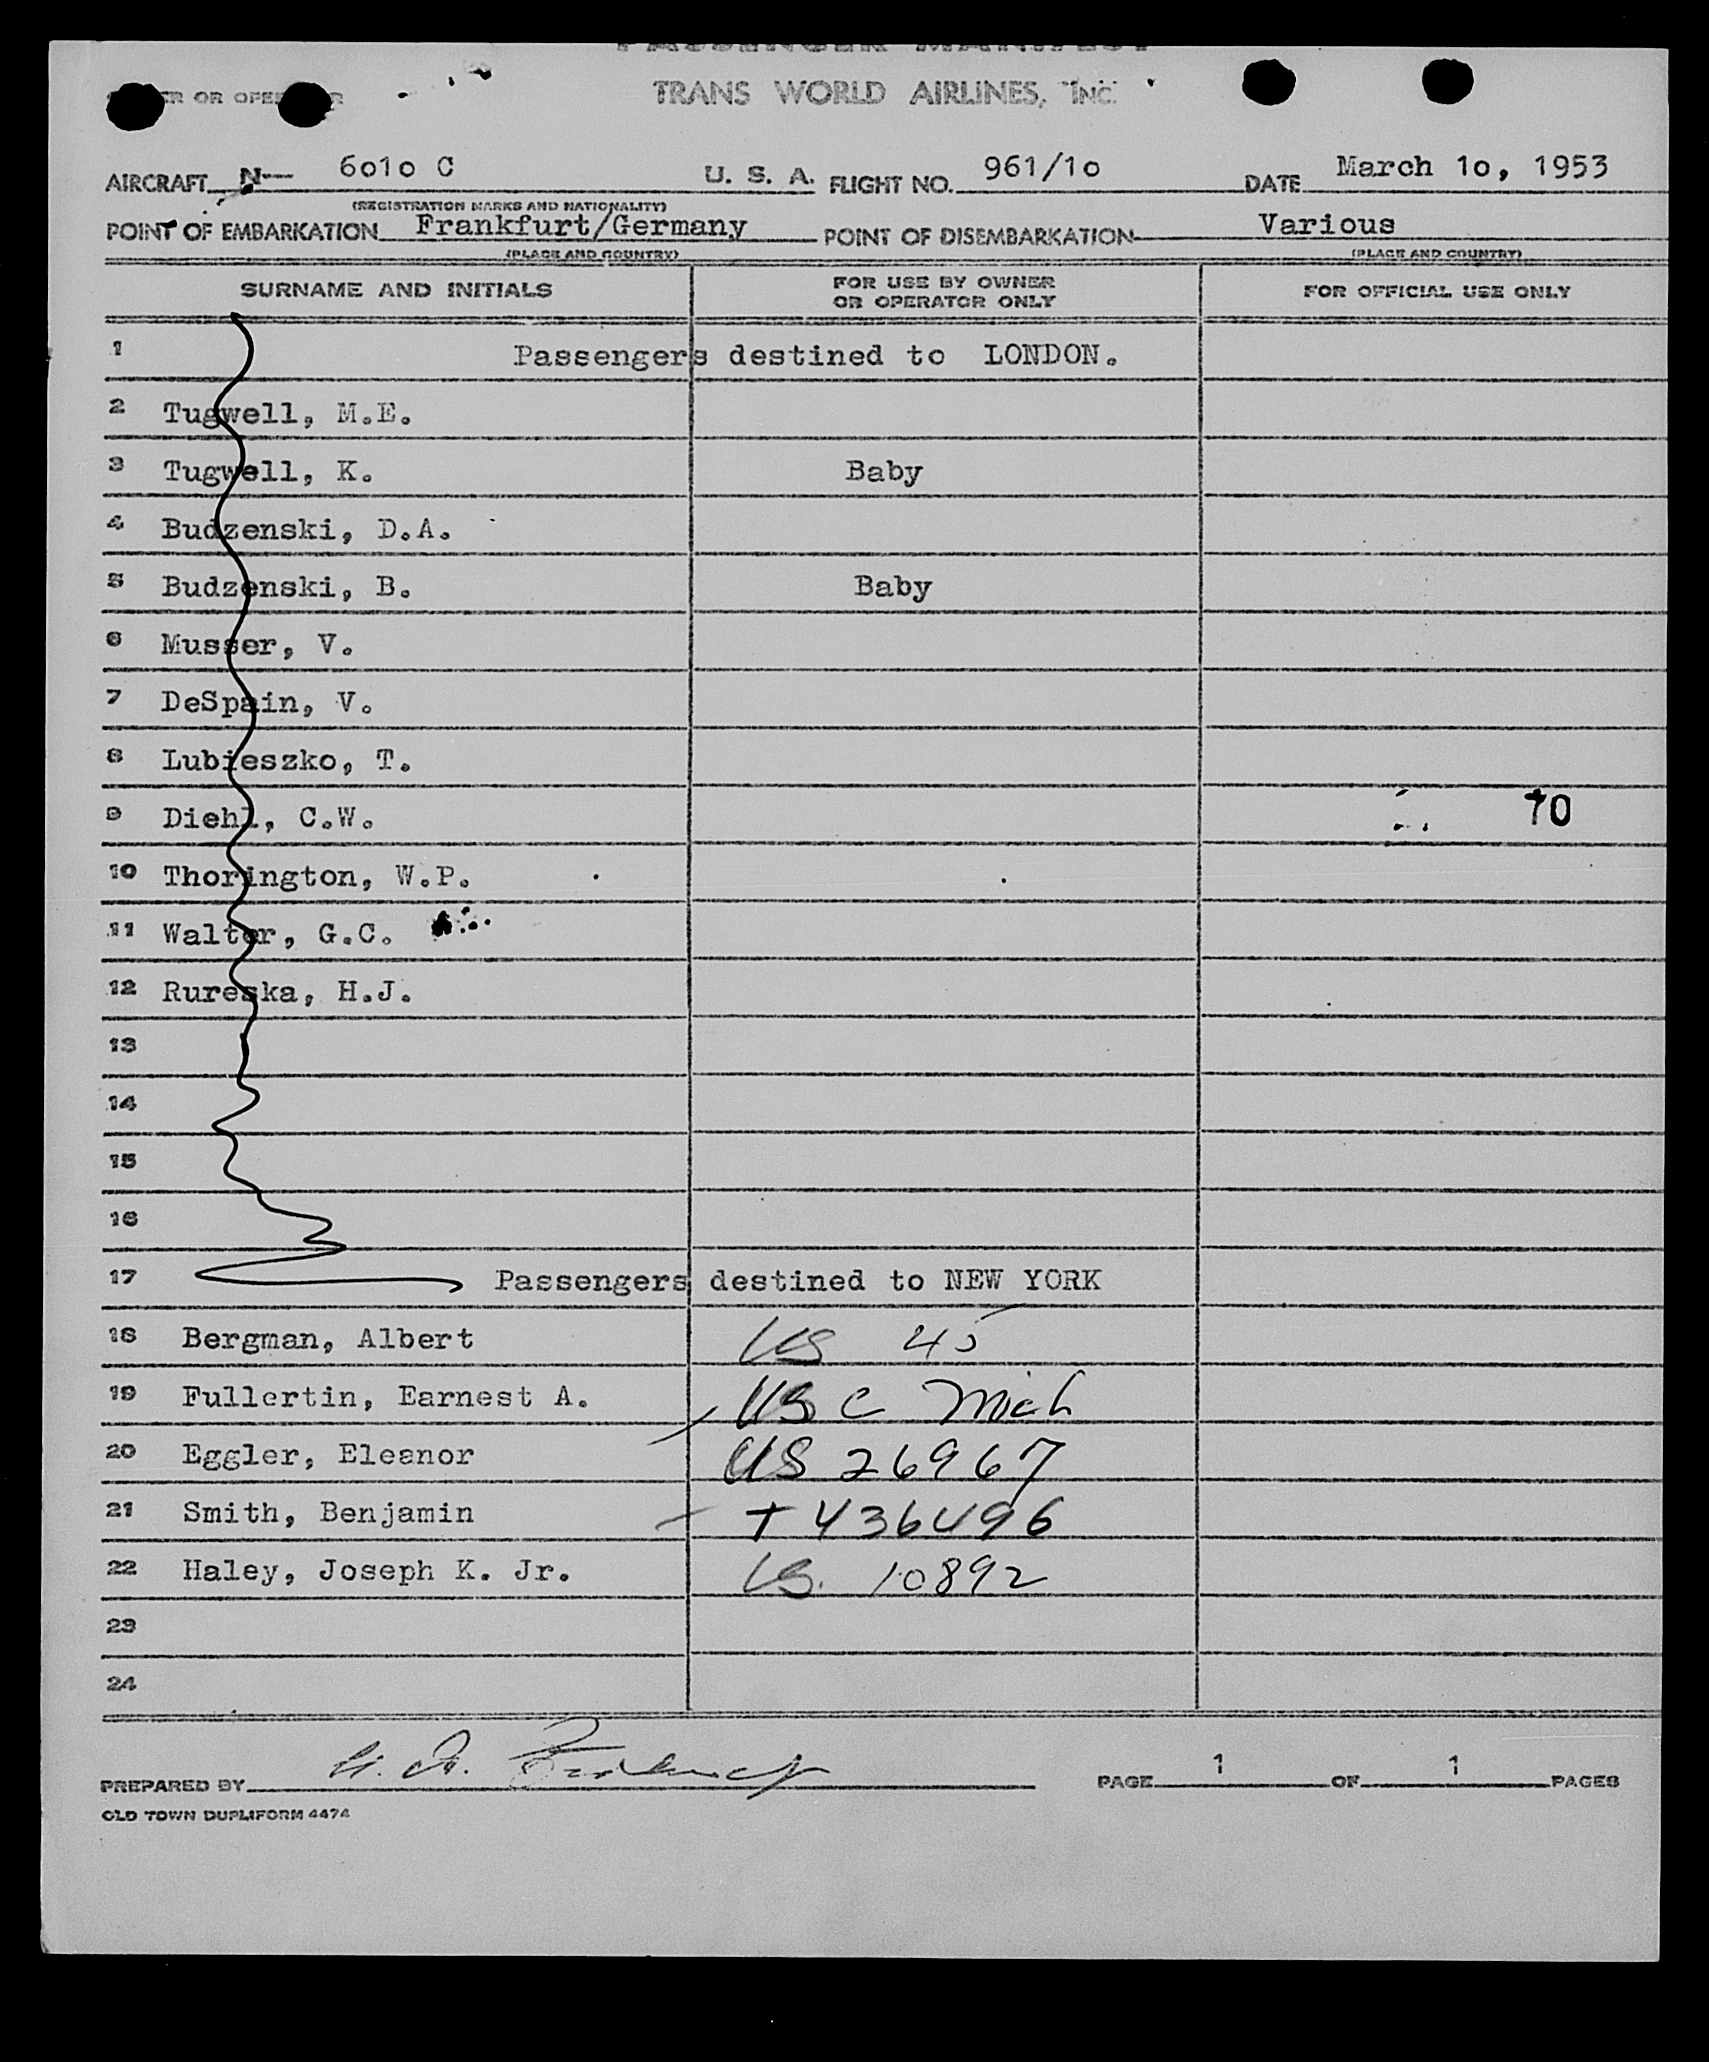 PASSENGER MANIFEST
OWNER OR OPERATOR TRANS WORLD AIRLINES, INC.
AIRCRAFT N— 6o1o C U. S. A. FLIGHT NO. 961/1o DATE March 1o, 1953
(REGISTRATION MARKS AND NATIONALITY)
POINT OF EMBARKATION Frankfurt/Germany POINT OF DISEMBARKATION Various
(PLACE AND COUNTRY) (PLACE AND COUNTRY)
SURNAME AND INITIALS FOR USE BY OWNER OR OPERATOR ONLY FOR OFFICIAL USE ONLY
1 Passengers destined to LONDON.
2 Tugwell, M.E.
3 Tugwell, K. Baby
4 Budzenski, D.A.
5 Budzenski, B. Baby
6 Musser, V.
7 DeSpain, V.
8 Lubieszko, T.
9 Diehl, C.W. 70
10 Thorington, W.P.
11 Walter, G.C.
12 Rureska, H.J.
13
14
15
16
17 Passengers destined to NEW YORK
18 Bergman, Albert US 45
19 Fullertin, Earnest A. US C Mich
20 Eggler, Eleanor US 26967
21 Smith, Benjamin + 436496
22 Haley, Joseph K. Jr. US. 10892
23
24
PREPARED BY PAGE 1 OF 1 PAGES
OLD TOWN DUPLIFORM 4474